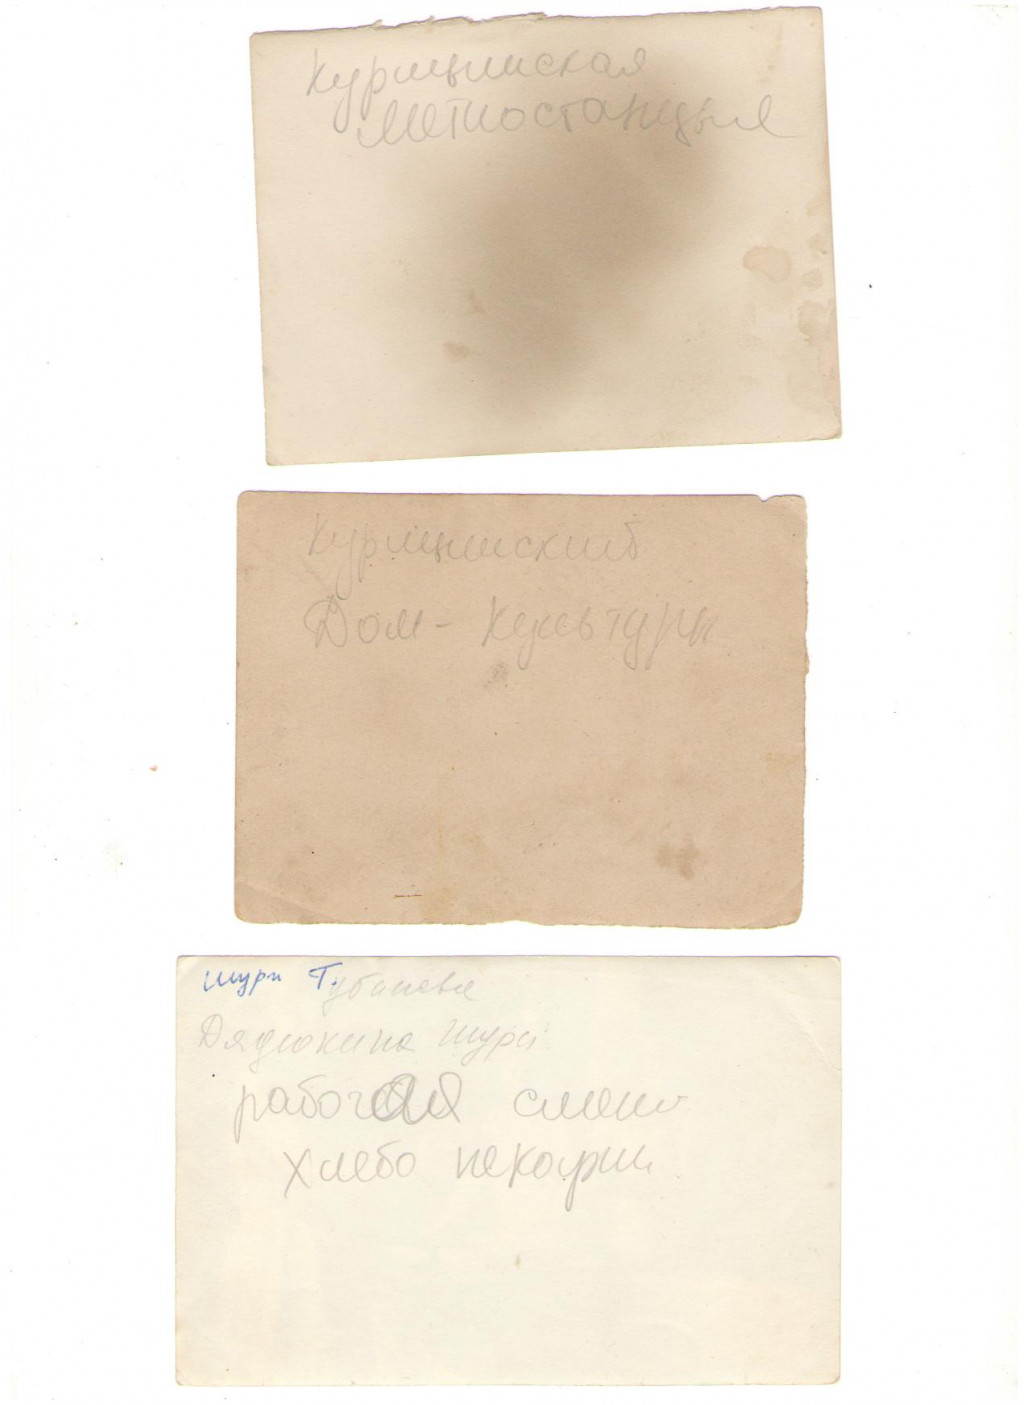 Курмышская
Метиостанцыя
Курмышский
Дом - Культуры
Шуры Т.
Дядюкина Шура
рабочая смена
хлебо пекарни